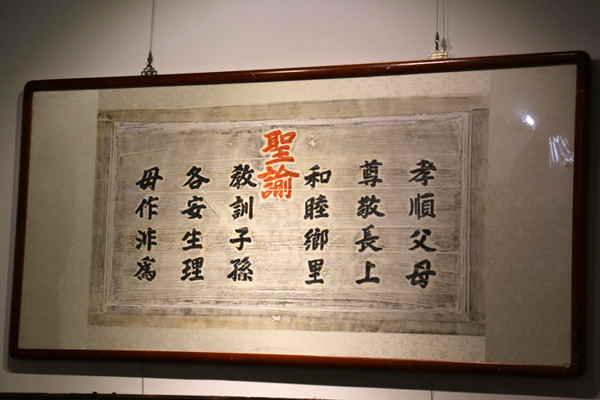 聖諭
孝順父母
尊敬長上
和睦鄉里
教訓子孫
各安生理
毋作非為